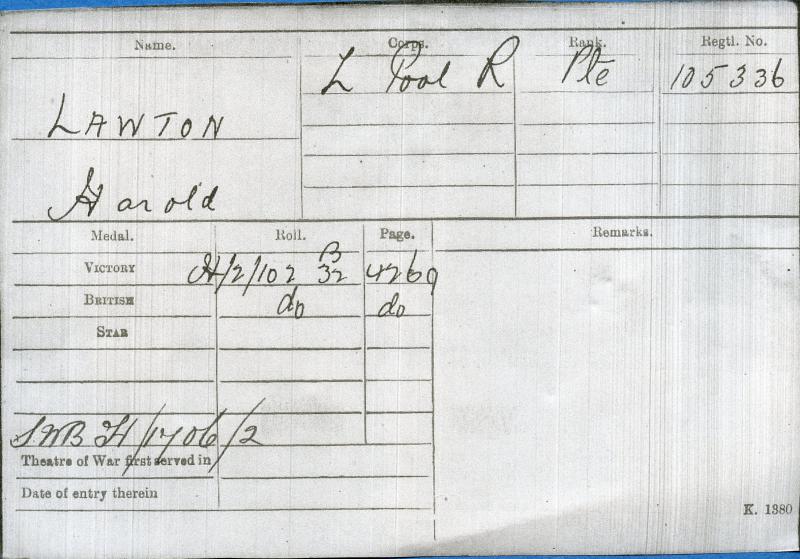 Name. Corps. Rank. Regtl. No.
L'Pool R Pte 105336
LAWTON
Harold
Medal. Roll. Page. Remarks.
VICTORY H/2/102 B32 4269
BRITISH do do
STAR
SWB H/1706/2
Theatre of War first served in
Date of entry therein
K. 1380